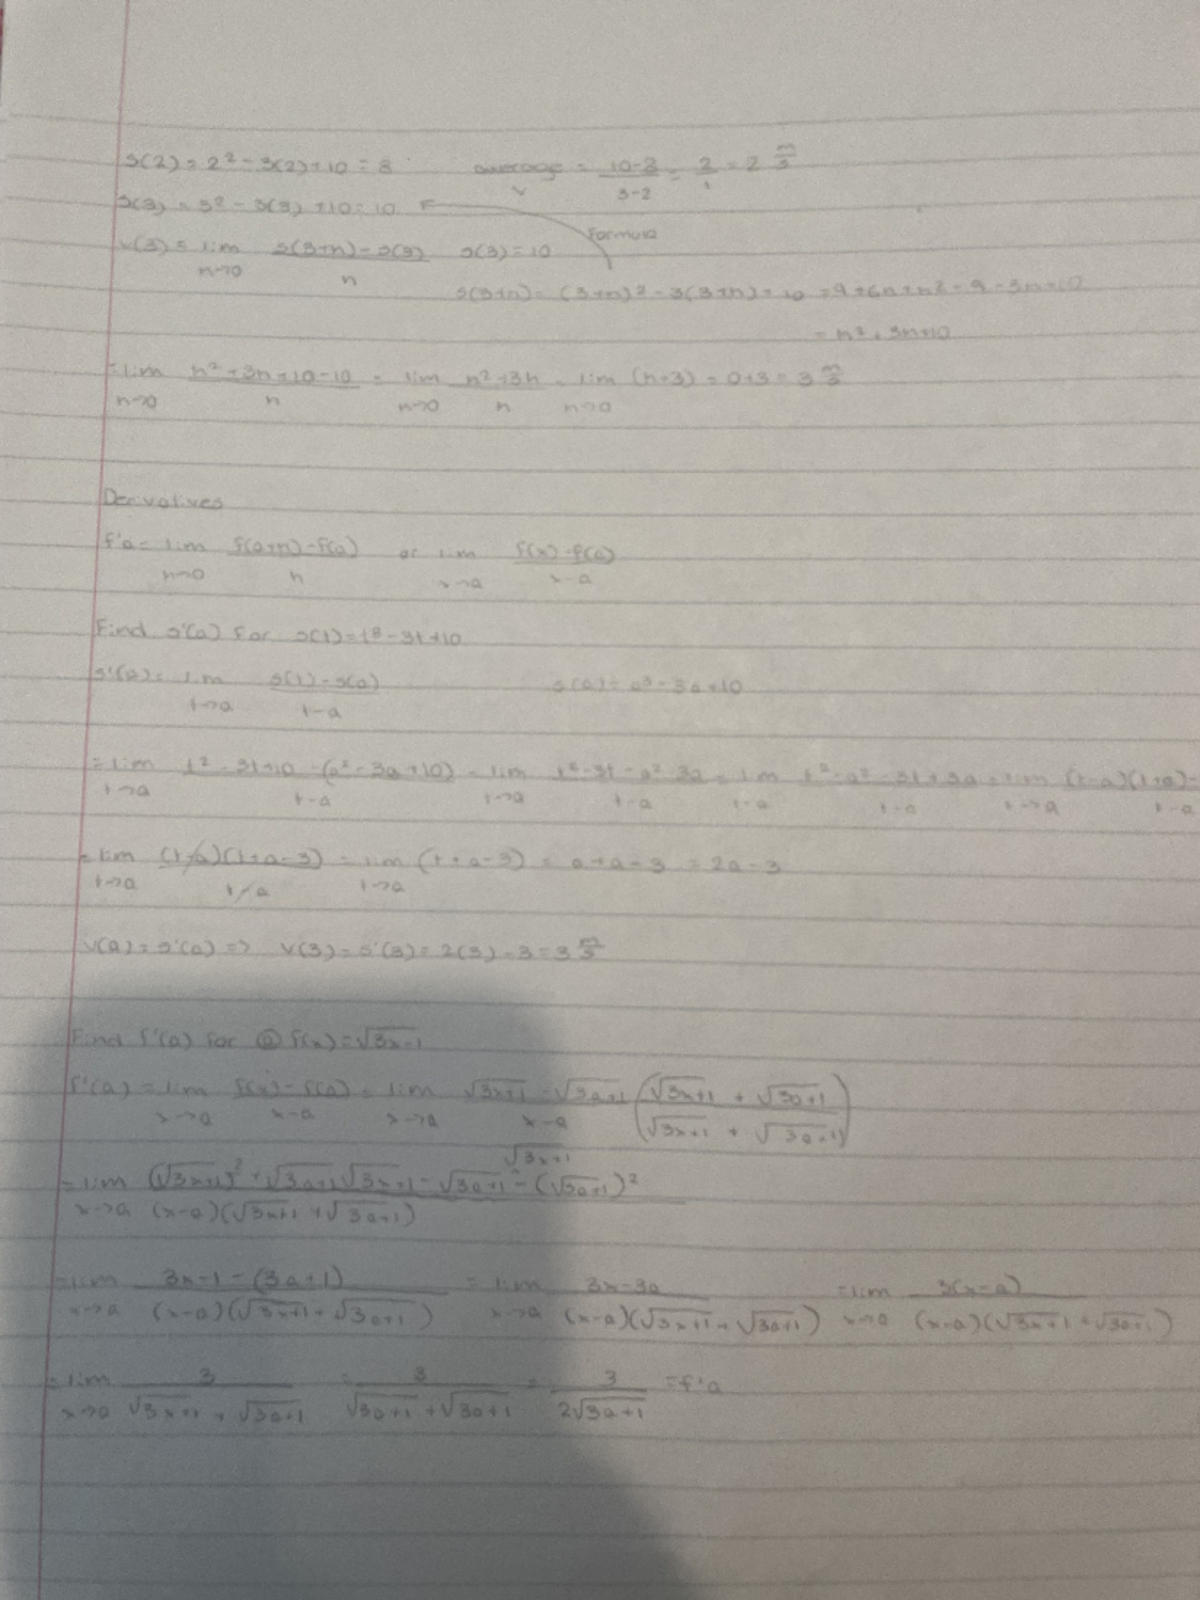 s(2) = 2² - 3(2) + 10 = 8 average v = (10-8)/(3-2) = 2/1 = 2 m/s
s(3) = 3² - 3(3) + 10 = 10
Formula
v(3) = lim h→0 (s(3+h) - s(3))/h s(3) = 10
s(3+h) = (3+h)² - 3(3+h) + 10 = 9+6h+h² - 9 - 3h+10
= h² + 3h+10
= lim h→0 (h² + 3h + 10 - 10)/h = lim h→0 (h² + 3h)/h = lim h→0 (h+3) = 0+3 = 3 m/s
Derivatives
f'a = lim h→0 (f(a+h) - f(a))/h or lim x→a (f(x) - f(a))/(x-a)
Find s'(a) for s(t) = t² - 3t + 10
s'(a) = lim t→a (s(t) - s(a))/(t-a) s(a) = a² - 3a + 10
= lim t→a (t² - 3t+10 - (a² - 3a + 10))/(t-a) = lim t→a (t² - 3t - a² 3a)/(t-a) = lim t→a (t² - a² - 3t + 3a)/(t-a) = lim t→a (t-a)(t+a) - /(t-a)
= lim t→a (t-a)(t+a-3)/(t-a) = lim t→a (t+a-3) = a+a-3 = 2a-3
v(a) = s'(a) => v(3) = s'(3) = 2(3) - 3 = 3 m/s
Find f'(a) for @ f(x) = √3x+1
f'(a) = lim x→a (f(x) - f(a))/(x-a) = lim x→a (√3x+1 - √3a+1)/(x-a) ((√3x+1 + √3a+1)/(√3x+1 + √3a+1))
√3x+1
= lim x→a ((√3x+1)² + √3a+1 √3x+1 - √3a+1 - (√3a+1)²)/((x-a)(√3x+1 + √3a+1))
= lim x→a (3x+1 - (3a+1))/((x-a)(√3x+1 + √3a+1)) = lim x→a (3x-3a)/((x-a)(√3x+1 + √3a+1)) = lim x→a 3(x-a)/((x-a)(√3x+1 + √3a+1))
= lim x→a 3/(√3x+1 + √3a+1) = 3/(√3a+1 + √3a+1) = 3/(2√3a+1) = f'a